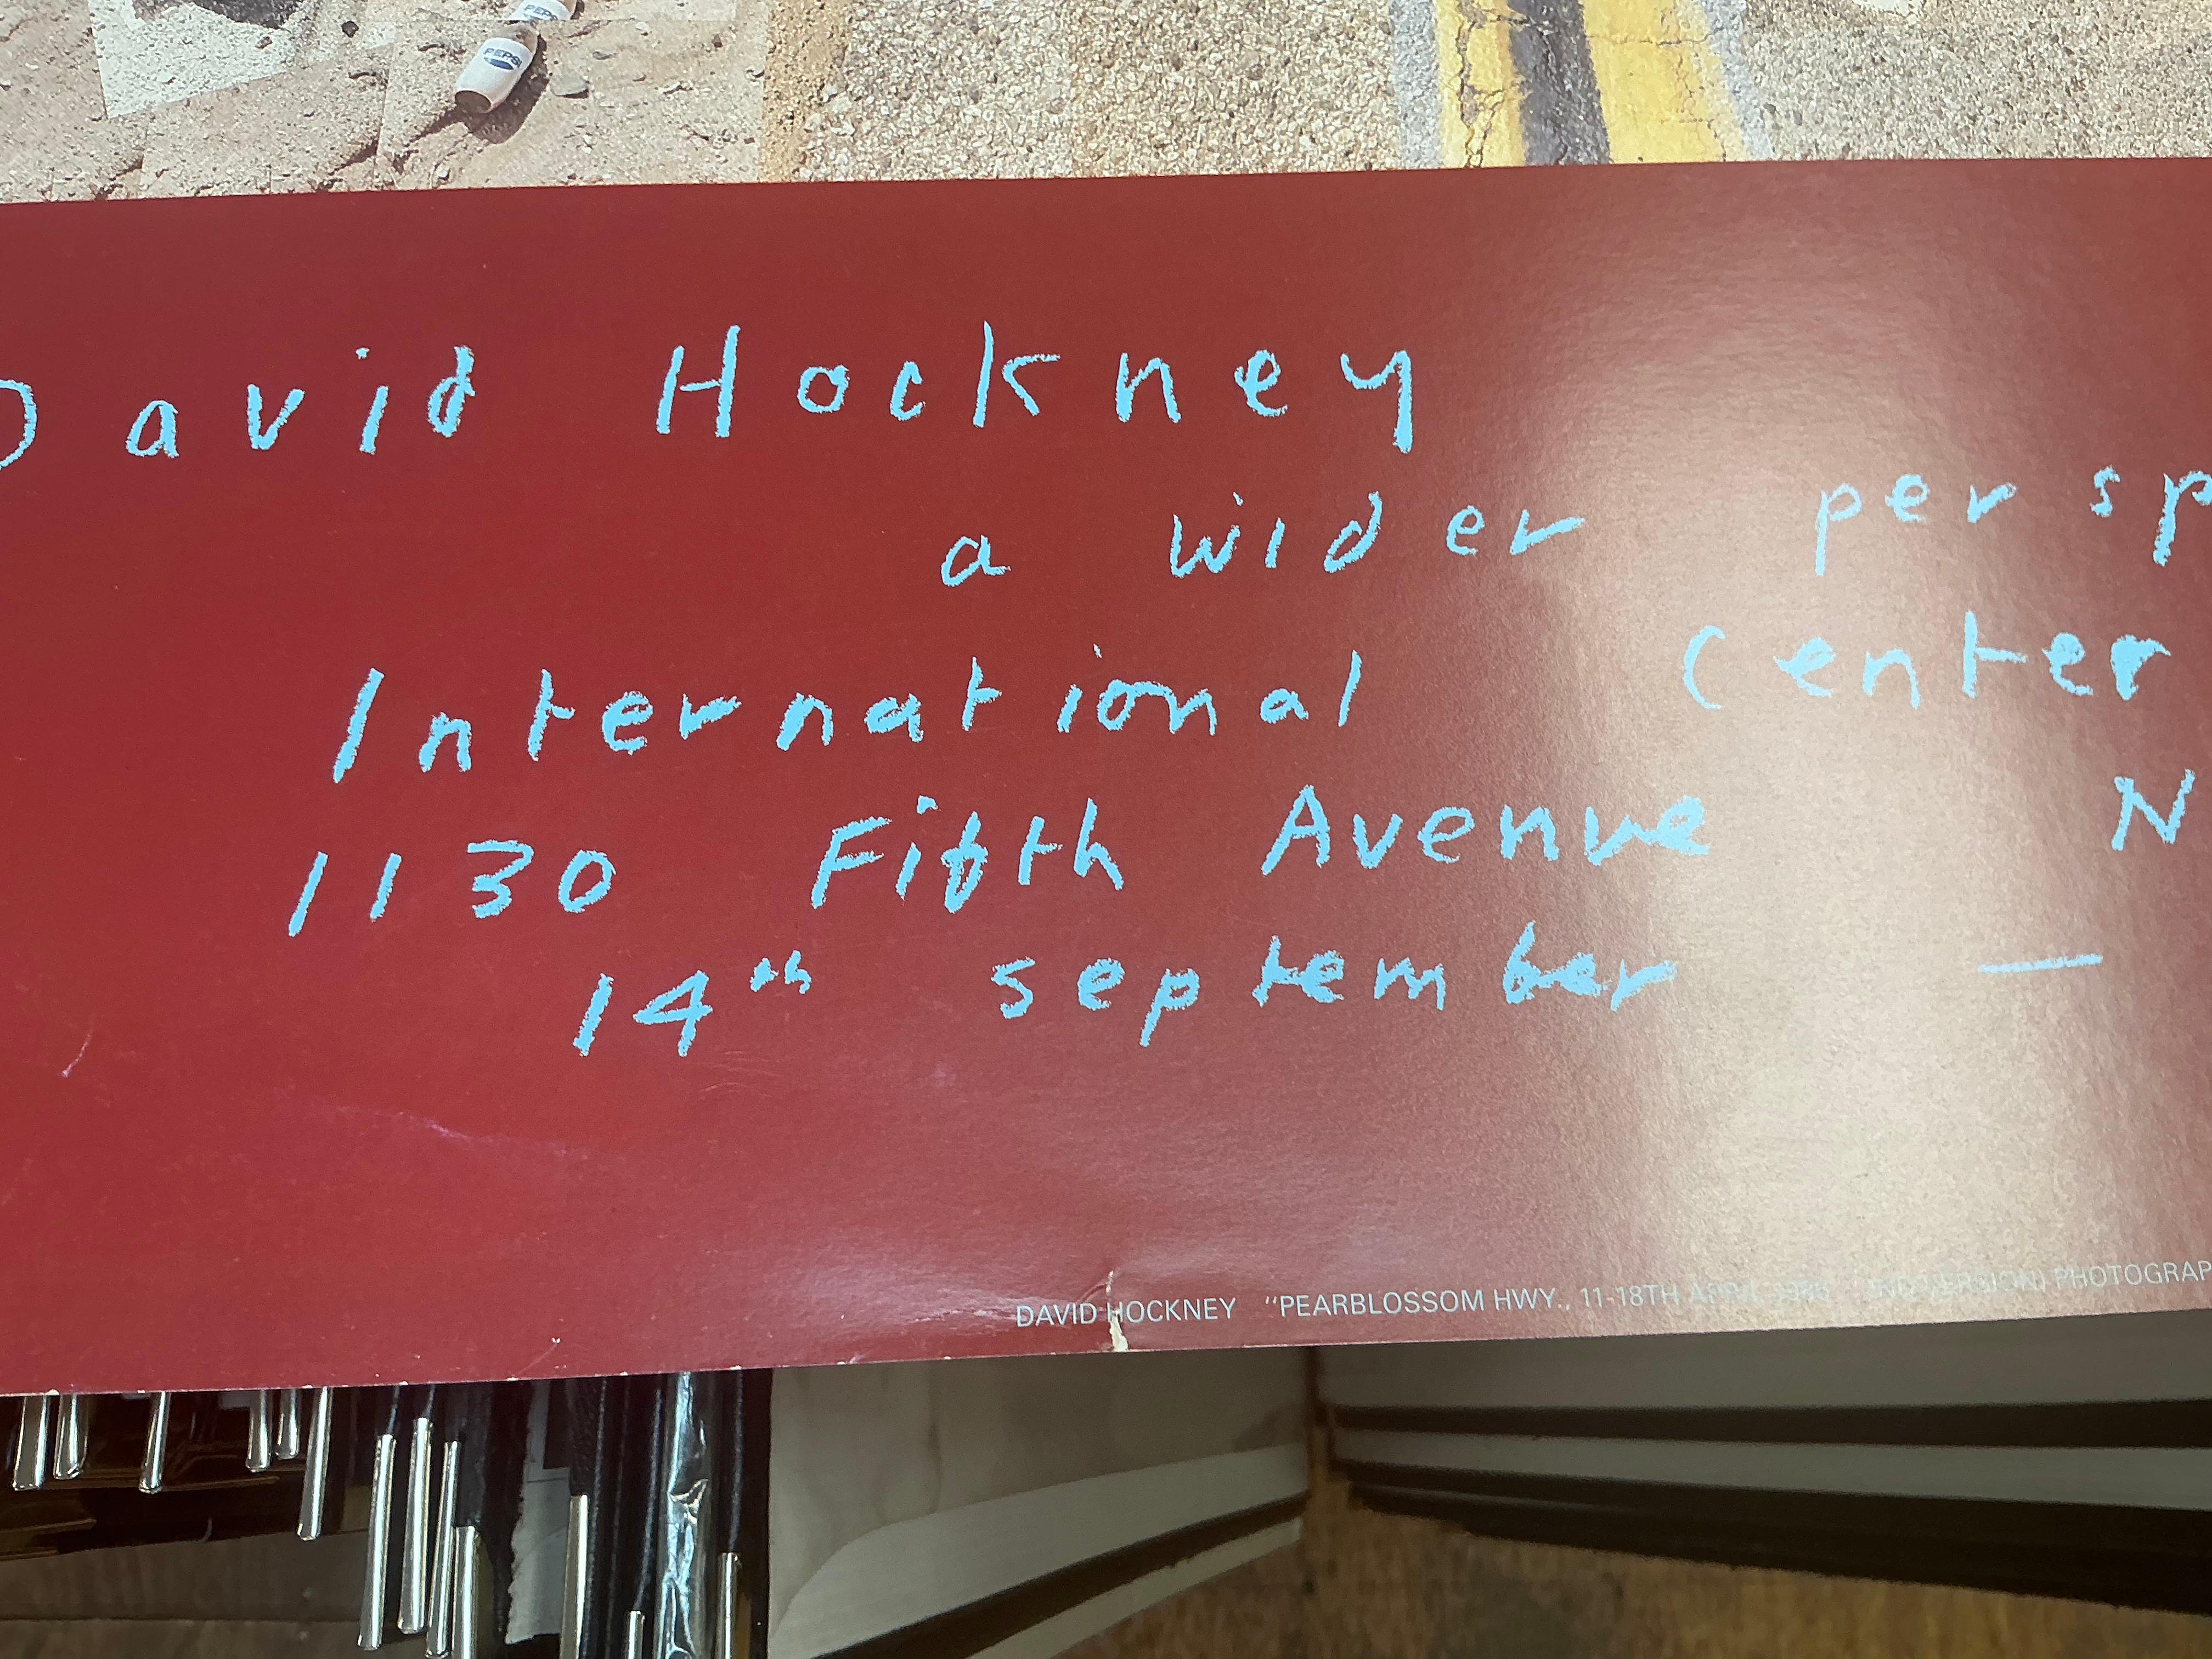 PEPSI
PEPSI
David Hockney
a wider persp
International Center
1130 Fifth Avenue N
14th september —
DAVID HOCKNEY "PEARBLOSSOM HWY., 11-18TH APRIL 1986 VERSION) PHOTOGRAP